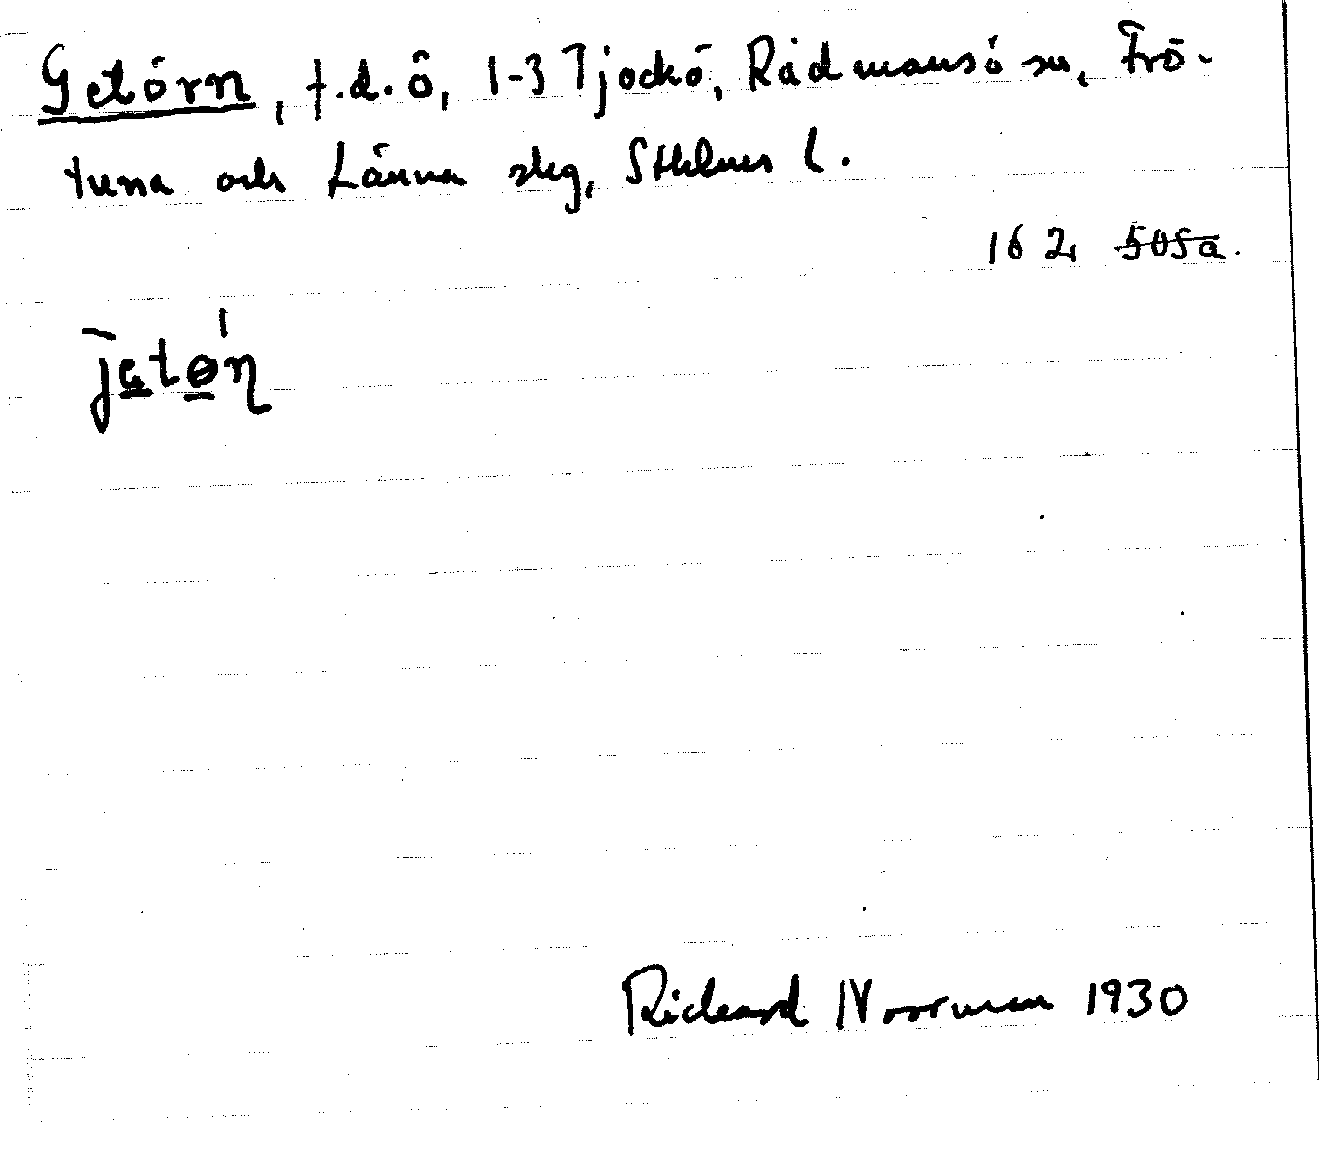 Getörn, f.d. ö, 1-3 Tjockö, Rådmansö sn, Frö-
tuna och Länna skg, Sthlms l.
162 505a.
jetøn
Richard Norrman 1930